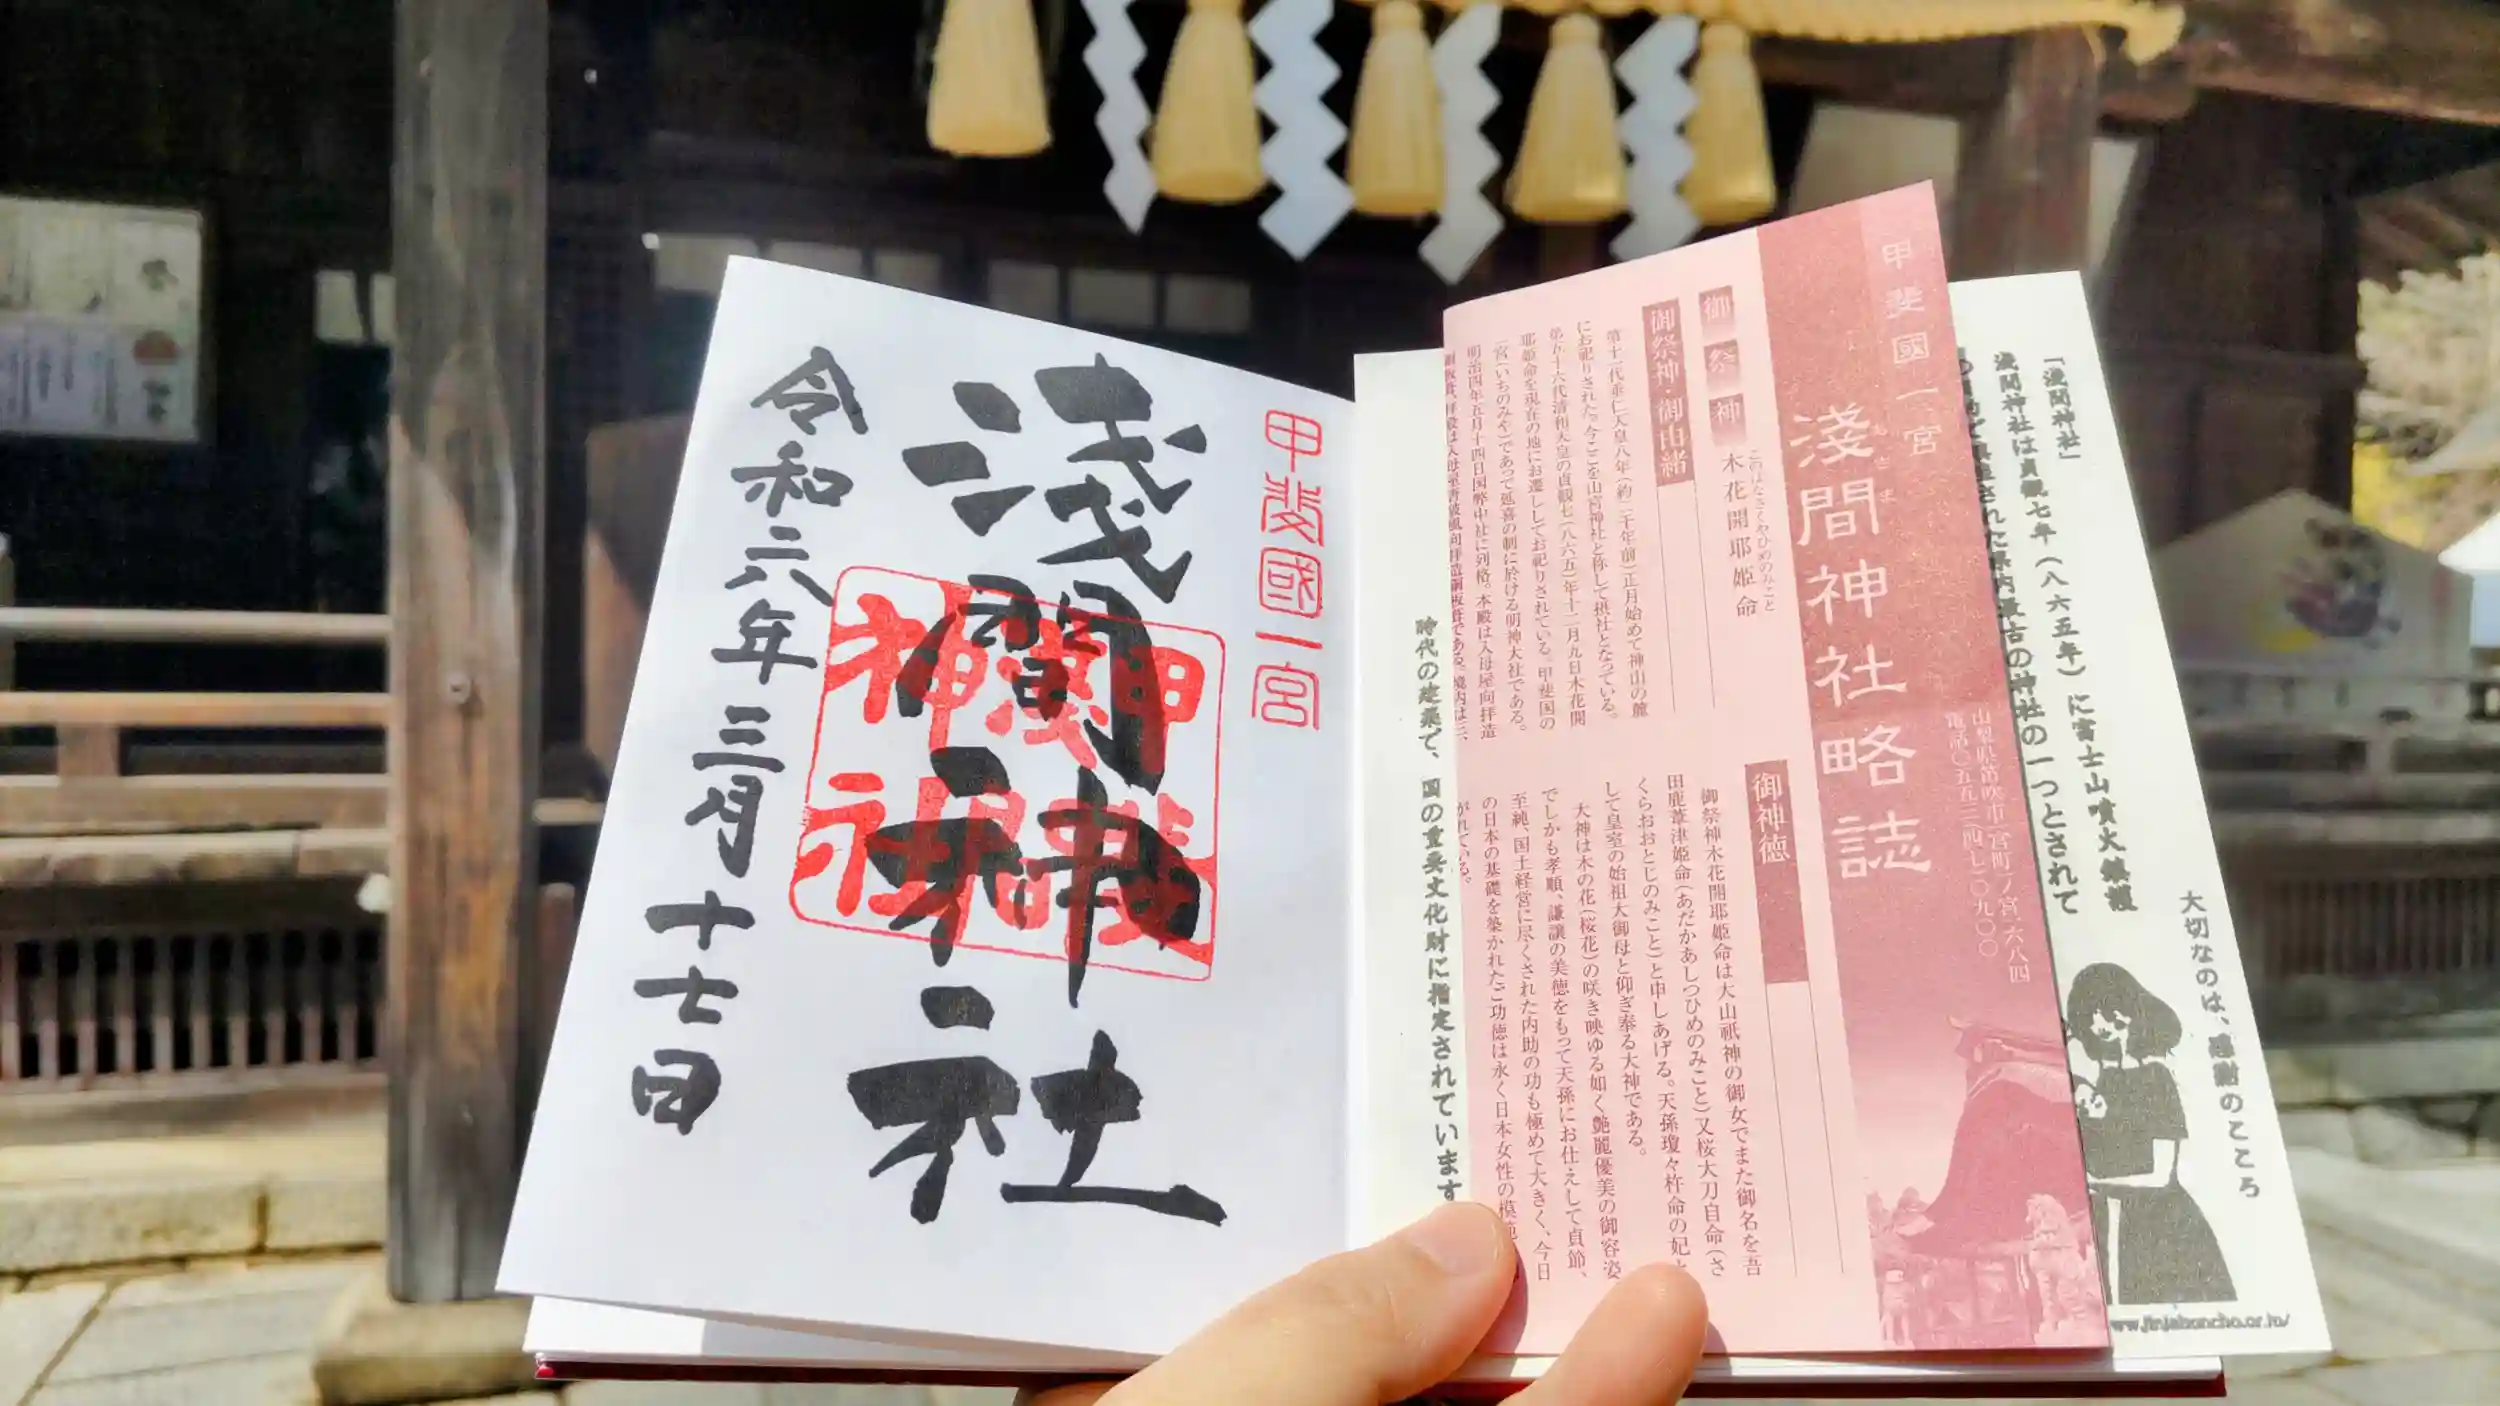 甲斐國一宮
淺間神社
令和六年三月十七日
甲斐國一宮
淺間神社略誌
あさま
山梨県笛吹市一宮町一ノ宮一六八四
電話〇五五三(四七)〇九〇〇
御祭神
木花開耶姫命
このはなさくやひめのみこと
御祭神・御由緒
第十一代垂仁天皇八年(約二千年前)正月始めて神山の麓
にお祀りされた。今ここを山宮神社と称して摂社となっている。
第五十六代清和天皇の貞観七(八六五)年十二月九日木花開
耶姫命を現在の地にお遷ししてお祀りされている。甲斐国の
一宮(いちのみや)であって延喜の制に於ける明神大社である。
明治四年五月十四日国幣中社に列格。本殿は入母屋向拝造
御神徳
御祭神木花開耶姫命は大山祇神の御女でまた御名を吾
田鹿葦津姫命(あだかあしつひめのみこと)又桜大刀自命(さ
くらおおとじのみこと)と申しあげる。天孫瓊々杵命の妃と
して皇室の始祖大御母と仰ぎ奉る大神である。
大神は木の花(桜花)の咲き映ゆる如く艶麗優美の御容姿
でしかも孝順、謙譲の美徳をもって天孫にお仕えして貞節、
至純、国土経営に尽くされた内助の功も極めて大きく、今日
の日本の基礎を築かれたご功徳は永く日本女性の模範
がれている。
「浅間神社」
浅間神社は貞観七年(八六五年)に富士山噴火鎮護
県内最古の神社の一つとされて
時代の建築で、国の重要文化財に指定されています
大切なのは、感謝のこころ
www.jinjahoncho.or.jp/